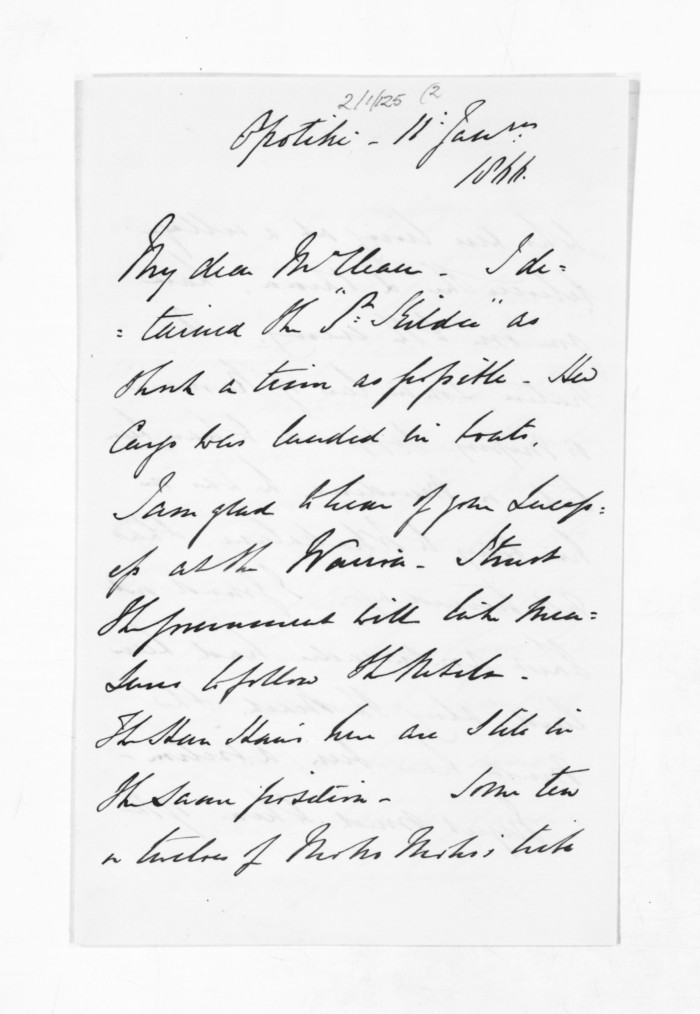 2/1/125 (2
Opotiki - 11: Jany
1866.
My dear McLean - I de=
=tained the "St. Kilda" as
short a time as possible - Her
Cargo was landed in boats.
I am glad to hear of your Success=
es at the Wairoa - I trust
the Government will take mea=
sures to follow the Rebels -
The Hau Haus here are still in
the same position - Some ten
or twelve of Moko Moko's tribe